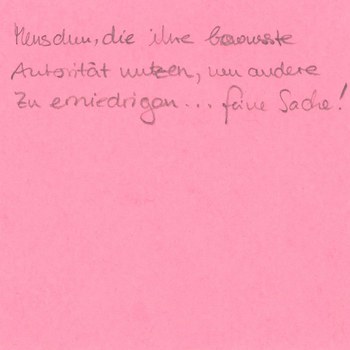 Menschen, die ihre bewusste
Autorität nutzen, um andere
zu erniedrigen... feine Sache!